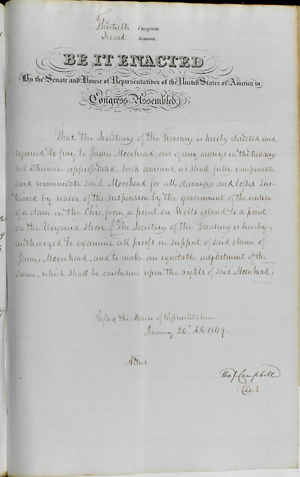 Thirtieth Congress
Second Session
BE IT ENACTED
By the Senate and House of Representatives of the United States of America in
Congress Assembled,
That the Secretary of the Treasury is hereby directed and
required to pay to James Moorhead, out of any moneys in the treasury
not otherwise appropriated, such amount as shall fully compensate
and remunerate said Moorhead for all damages and losses sus-
tained by reason of the suspension by the government of the erection
of a dam in the Ohio from a point on Wells island to a point
on the Virginia shore. [The Secretary of the Treasury is hereby
authorized to examine all proofs in support of said claim of
James Moorehead, and to make an equitable adjustment of the
same, which shall be conclusive upon the rights of said Moorhead.]
Passed the House of Representatives
January 26th 1849.
Attest
Tho J Campbell
Clerk